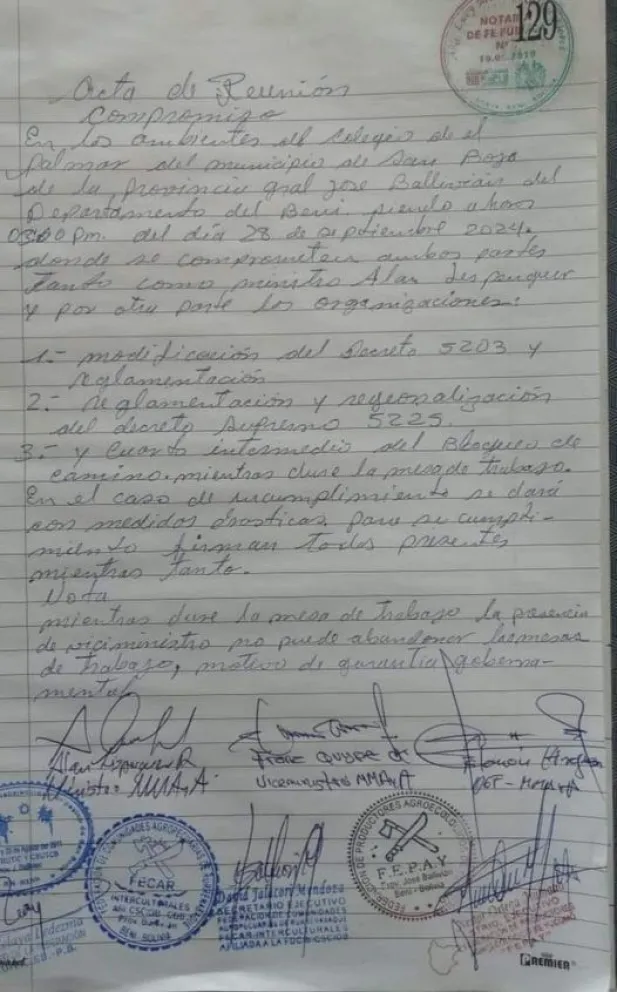 NOTAR
DE FE PUB
Nº
129
Acta de Reunión
compromiso
En los ambientes del colegio de el
Palmar del municipio de San Borja
de la provincia gral Jose Ballivian del
Departamento del Beni siendo a horas
03:00 Pm. del dia 28 de septiembre 2024.
donde se comprometen ambos partes
tanto como ministro Alan
y por otra parte las organizaciones:
1.- modificación del Decreto 5203 y
reglamentación
2.- reglamentación y regeonalización
del decreto supremo 5225.
3.- y cuarto intermedio del Bloqueo de
camino. mientras dure la mesa de trabajo.
En el caso de incumplimiento se dará
con medidas drasticas. para su cumpli-
miento firman todos presentes
mientras tanto.
Nota
mientras dure la mesa de trabajo la presencia
de viciministro no puede abandonar las mesas
de trabajo, motivo de garantia guberna-
mental
Alan Lisperguer R
Ministro MMAyA
Viceministro MMAyA
FEDERACION DE COMUNIDADES AGROPECUARIAS
FECAR
INTERCULTURALES
BENI - BOLIVIA
David Jaldcon Mendoza
SECRETARIO EJECUTIVO
FEDERACION DE COMUNIDADES
FECAR INTERCULTURALES
AFILIADA A LA
FEDERACION DE PRODUCTORES AGROECOLOGICOS
F.E.P.A.Y
Prov. José Ballivian
Beni - Bolivia
PREMIER